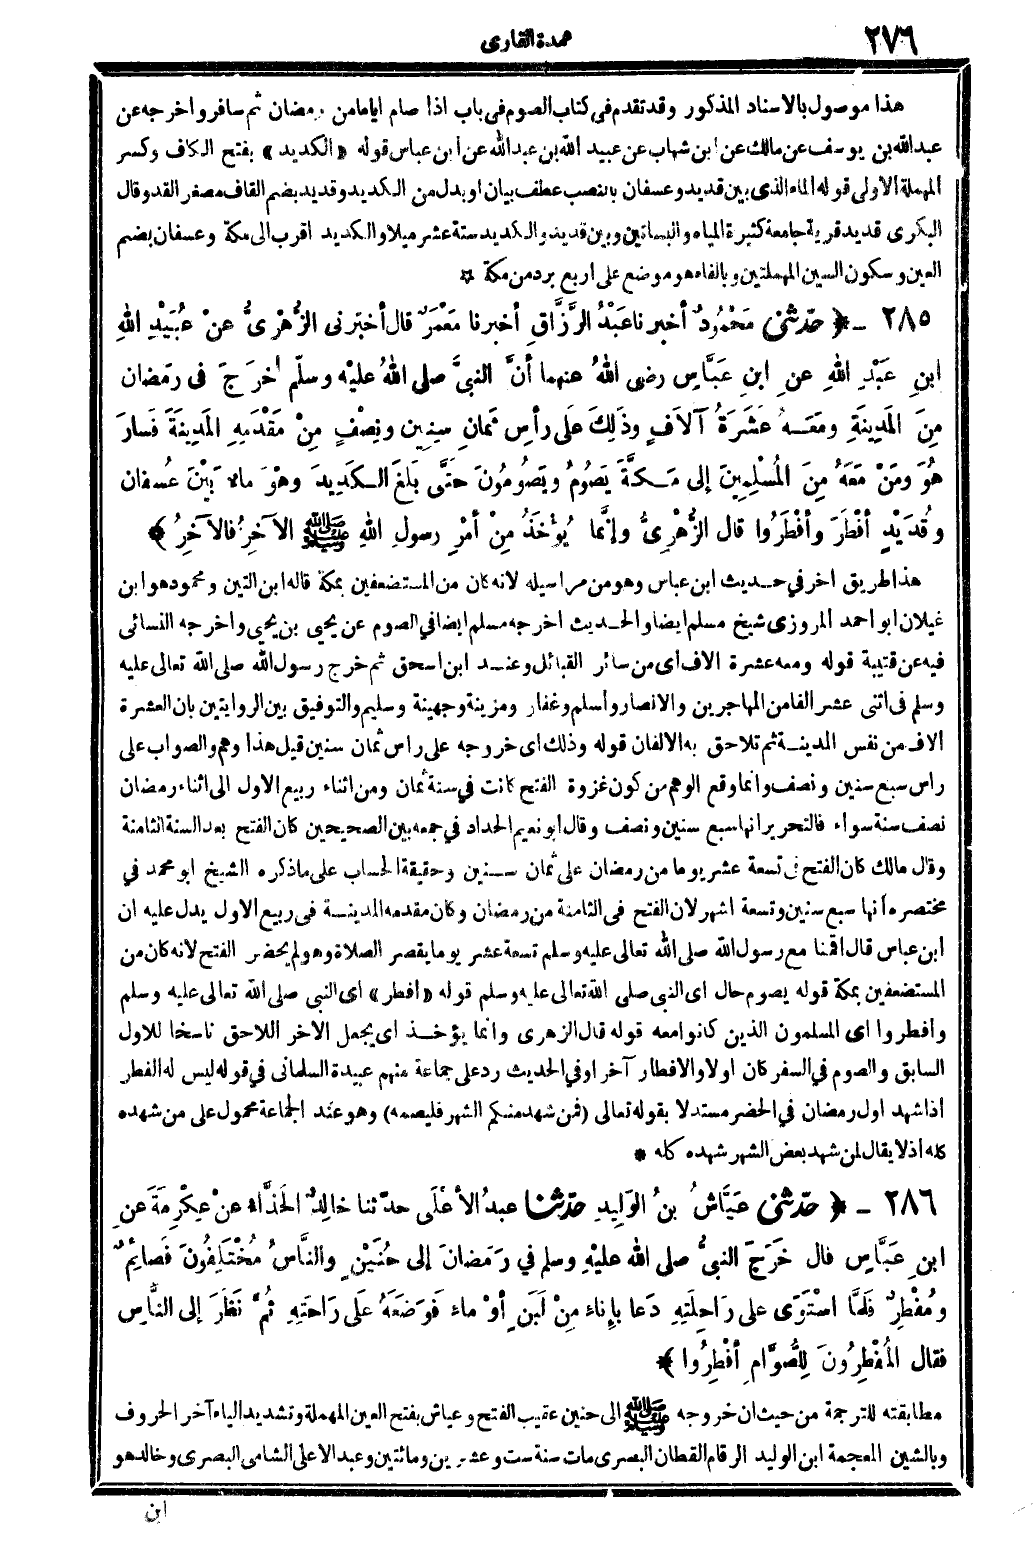 ٢٧٦
عمدة القارى
هذا موصول بالاسناد المذكور وقد تقدم فى كتاب الصوم فى باب اذا صام اياما من رمضان ثم سافر واخرجه عن
عبد الله بن يوسف عن مالك عن ابن شهاب عن عبيد الله بن عبد الله عن ابن عباس قوله «الكديد» بفتح الكاف وكسر
المهملة الاولى قوله الماء الذى بين قديد وعسفان بالنصب عطف بيان او بدل من الكديد وقديد بضم القاف مصغر القد وقال
البكرى قديد قرية جامعة كثيرة المياه والبساتين وبين قديد والكديد ستة عشر ميلا والكديد اقرب الى مكة وعسفان بضم
العين وسكون السين المهملتين وبالفاء هو موضع على اربع برد من مكة ☆
٢٨٥ - ﴿ حَدّثنى مَحْمُودٌ أخبرنا عَبْدُ الرَّزَّاقِ أخبرنا مَعْمَرٌ قال أخبَرنى الزُّهْرِىُّ عنْ عُبَيْدِ اللهِ
ابنِ عَبْدِ اللهِ عنِ ابنِ عَبَّاسٍ رضى اللهُ عنهما أنَّ النبىَّ صلى اللهُ عليْه وسلّم خرَجَ فى رمَضان
مِنَ المَدِينَةِ ومَعَهُ عَشَرَةُ آلاَفٍ وذٰلِكَ عَلَى رأسِ ثمَانِ سِنِينَ ونِصْفٍ مِنْ مَقْدَمِهِ المَدِينَةَ فَسارَ
هُوَ ومَنْ مَعَهُ مِنَ المُسْلِمِينَ إلى مَكَّةَ يَصُومُ ويَصُومُونَ حَتَّى بَلَغَ الكَدِيدَ وهْوَ ماءٌ بَيْنَ عُسفان
وقُدَيْدٍ أفْطَرَ وأفْطَرُوا قال الزُّهْرِىُّ وإنَّما يُؤْخَذُ مِنْ أمْرِ رسولِ اللهِ ﷺ الآخِرُ فالآخِرُ ﴾
هذا طريق اخر في حديث ابن عباس وهو من مراسيله لانه كان من المستضعفين بمكة قاله ابن التين ومحمود هو ابن
غيلان ابو احمد المروزى شيخ مسلم ايضا والحديث اخرجه مسلم ايضا في الصوم عن يحيى بن يحيى واخرجه النسائى
فيه عن قتيبة قوله ومعه عشرة الاف اى من سائر القبائل وعند ابن اسحق ثم خرج رسول الله صلى الله تعالى عليه
وسلم فى اثنى عشر الفا من المهاجرين والانصار وأسلم وغفار ومزينة وجهينة وسليم والتوفيق بين الروايتين بان العشرة
الاف من نفس المدينة ثم تلاحق به الالفان قوله وذلك اى خروجه على راس ثمان سنين قيل هذا وهم والصواب على
راس سبع سنين ونصف وانما وقع الوهم من كون غزوة الفتح كانت في سنة ثمان ومن اثناء ربيع الاول الى اثناء رمضان
نصف سنة سواء فالتحرير انها سبع سنين ونصف وقال ابو نعيم الحداد في جمعه بين الصحيحين كان الفتح بعد السنة الثامنة
وقال مالك كان الفتح في تسعة عشر يوما من رمضان على ثمان سنين وحقيقة الحساب على ماذكره الشيخ ابو محمد في
مختصره أنها سبع سنين وتسعة اشهر لان الفتح فى الثامنة من رمضان وكان مقدمه المدينة فى ربيع الاول يدل عليه ان
ابن عباس قال اقمنا مع رسول الله صلى الله تعالى عليه وسلم تسعة عشر يوما يقصر الصلاة وهو لم يحضر الفتح لانه كان من
المستضعفين بمكة قوله يصوم حال اى النبى صلى الله تعالى عليه وسلم قوله «افطر» اى النبى صلى الله تعالى عليه وسلم
وافطروا اى المسلمون الذين كانوا معه قوله قال الزهرى وانما يؤخذ اى يجعل الاخر اللاحق ناسخا للاول
السابق والصوم في السفر كان اولا والافطار آخرا وفي الحديث رد على جماعة منهم عبيدة السلمانى في قوله ليس له الفطر
اذا شهد اول رمضان في الحضر مستدلا بقوله تعالى (فمن شهد منكم الشهر فليصمه) وهو عند الجماعة محمول على من شهده
كله اذ لا يقال لمن شهد بعض الشهر شهده كله *
٢٨٦ - ﴿ حَدّثنى عَيَّاشُ بنُ الوَلِيدِ حَدّثنا عبدُ الأعْلَى حدّثنا خالِدٌ الحَذَّاءُ عنْ عِكْرِمَةَ عنِ
ابنِ عَبَّاسٍ قال خَرَجَ النبىُّ صلى الله عليْهِ وسلم في رَمَضانَ إلى حُنَيْنٍ والنَّاسُ مُخْتَلِفُونَ فَصائِمٌ
ومُفْطِرٌ فَلَمَّا اسْتَوَى على رَاحِلَتِهِ دَعا بإِناءٍ مِنْ لَبَنٍ أوْ ماء فَوَضَعَهُ عَلَى رَاحَتِهِ ثُمَّ نَظَرَ إلى النَّاسِ
فقال المُفْطِرُونَ لِلصُّوَّامِ أفْطِرُوا ﴾
مطابقته للترجمة من حيث ان خروجه ﷺ الى حنين عقيب الفتح وعياش بفتح العين المهملة وتشديد الياء آخر الحروف
وبالشين المعجمة ابن الوليد الرقام القطان البصرى مات سنة ست وعشرين ومائتين وعبد الاعلى الشامى البصرى وخالد هو
ابن